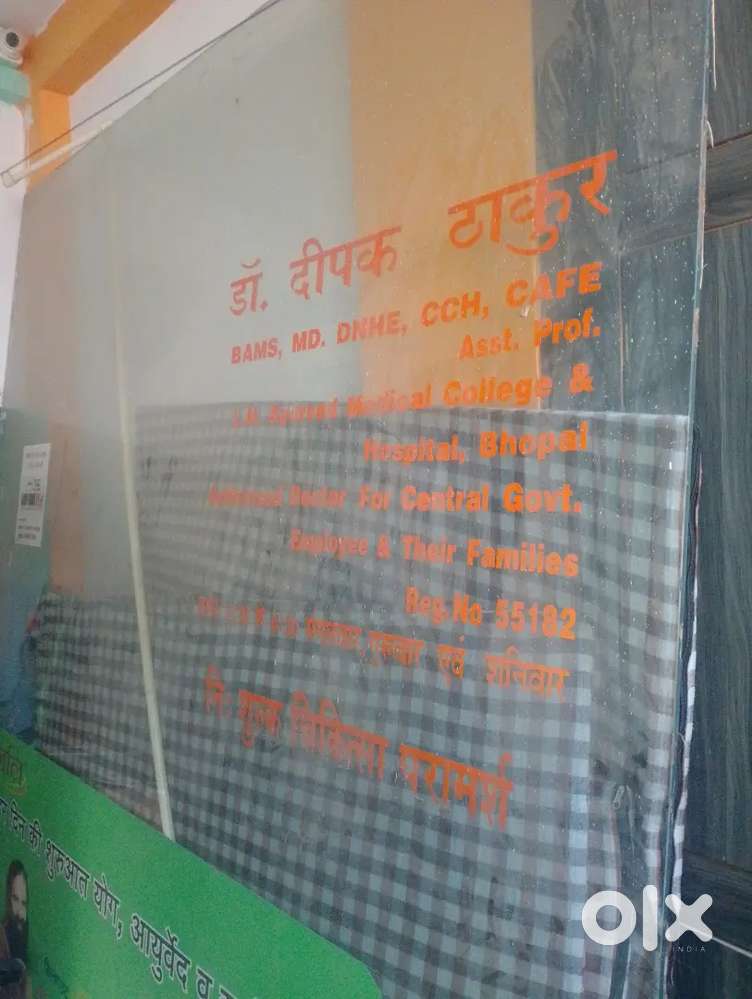 डॉ. दीपक ठाकुर
BAMS, MD. DNHE, CCH, CAFE
Asst. Prof.
L.N. Ayurved Medical College &
Hospital, Bhopal
Authorised Doctor For Central Govt.
Employee & Their Families
Reg.No 55182
मंगलवार, गुरुवार एवं शनिवार
निःशुल्क चिकित्सा परामर्श
दिन की शुरुआत योग, आयुर्वेद व
olx
INDIA